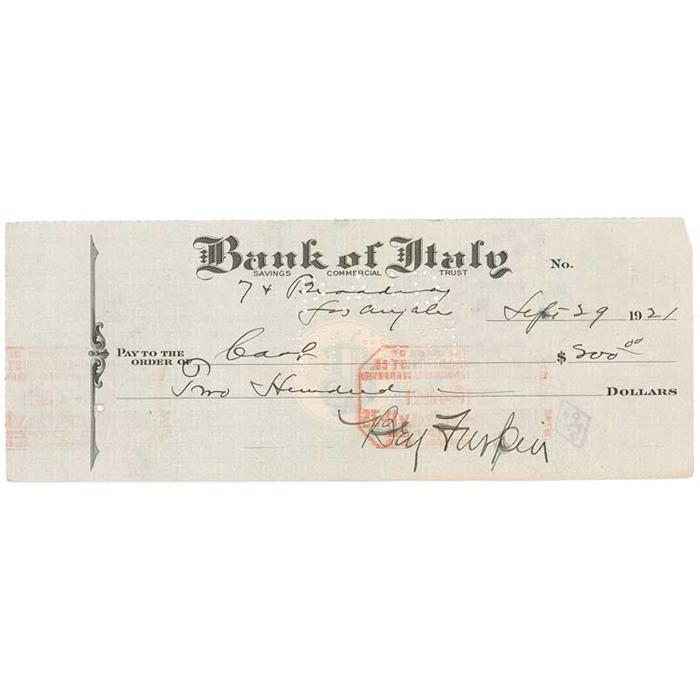 Bank of Italy
SAVINGS COMMERCIAL TRUST
No.
7 & Broadway
Los Angeles
Sept 29 1921
PAY TO THE ORDER OF Cash $200.00
Two Hundred DOLLARS